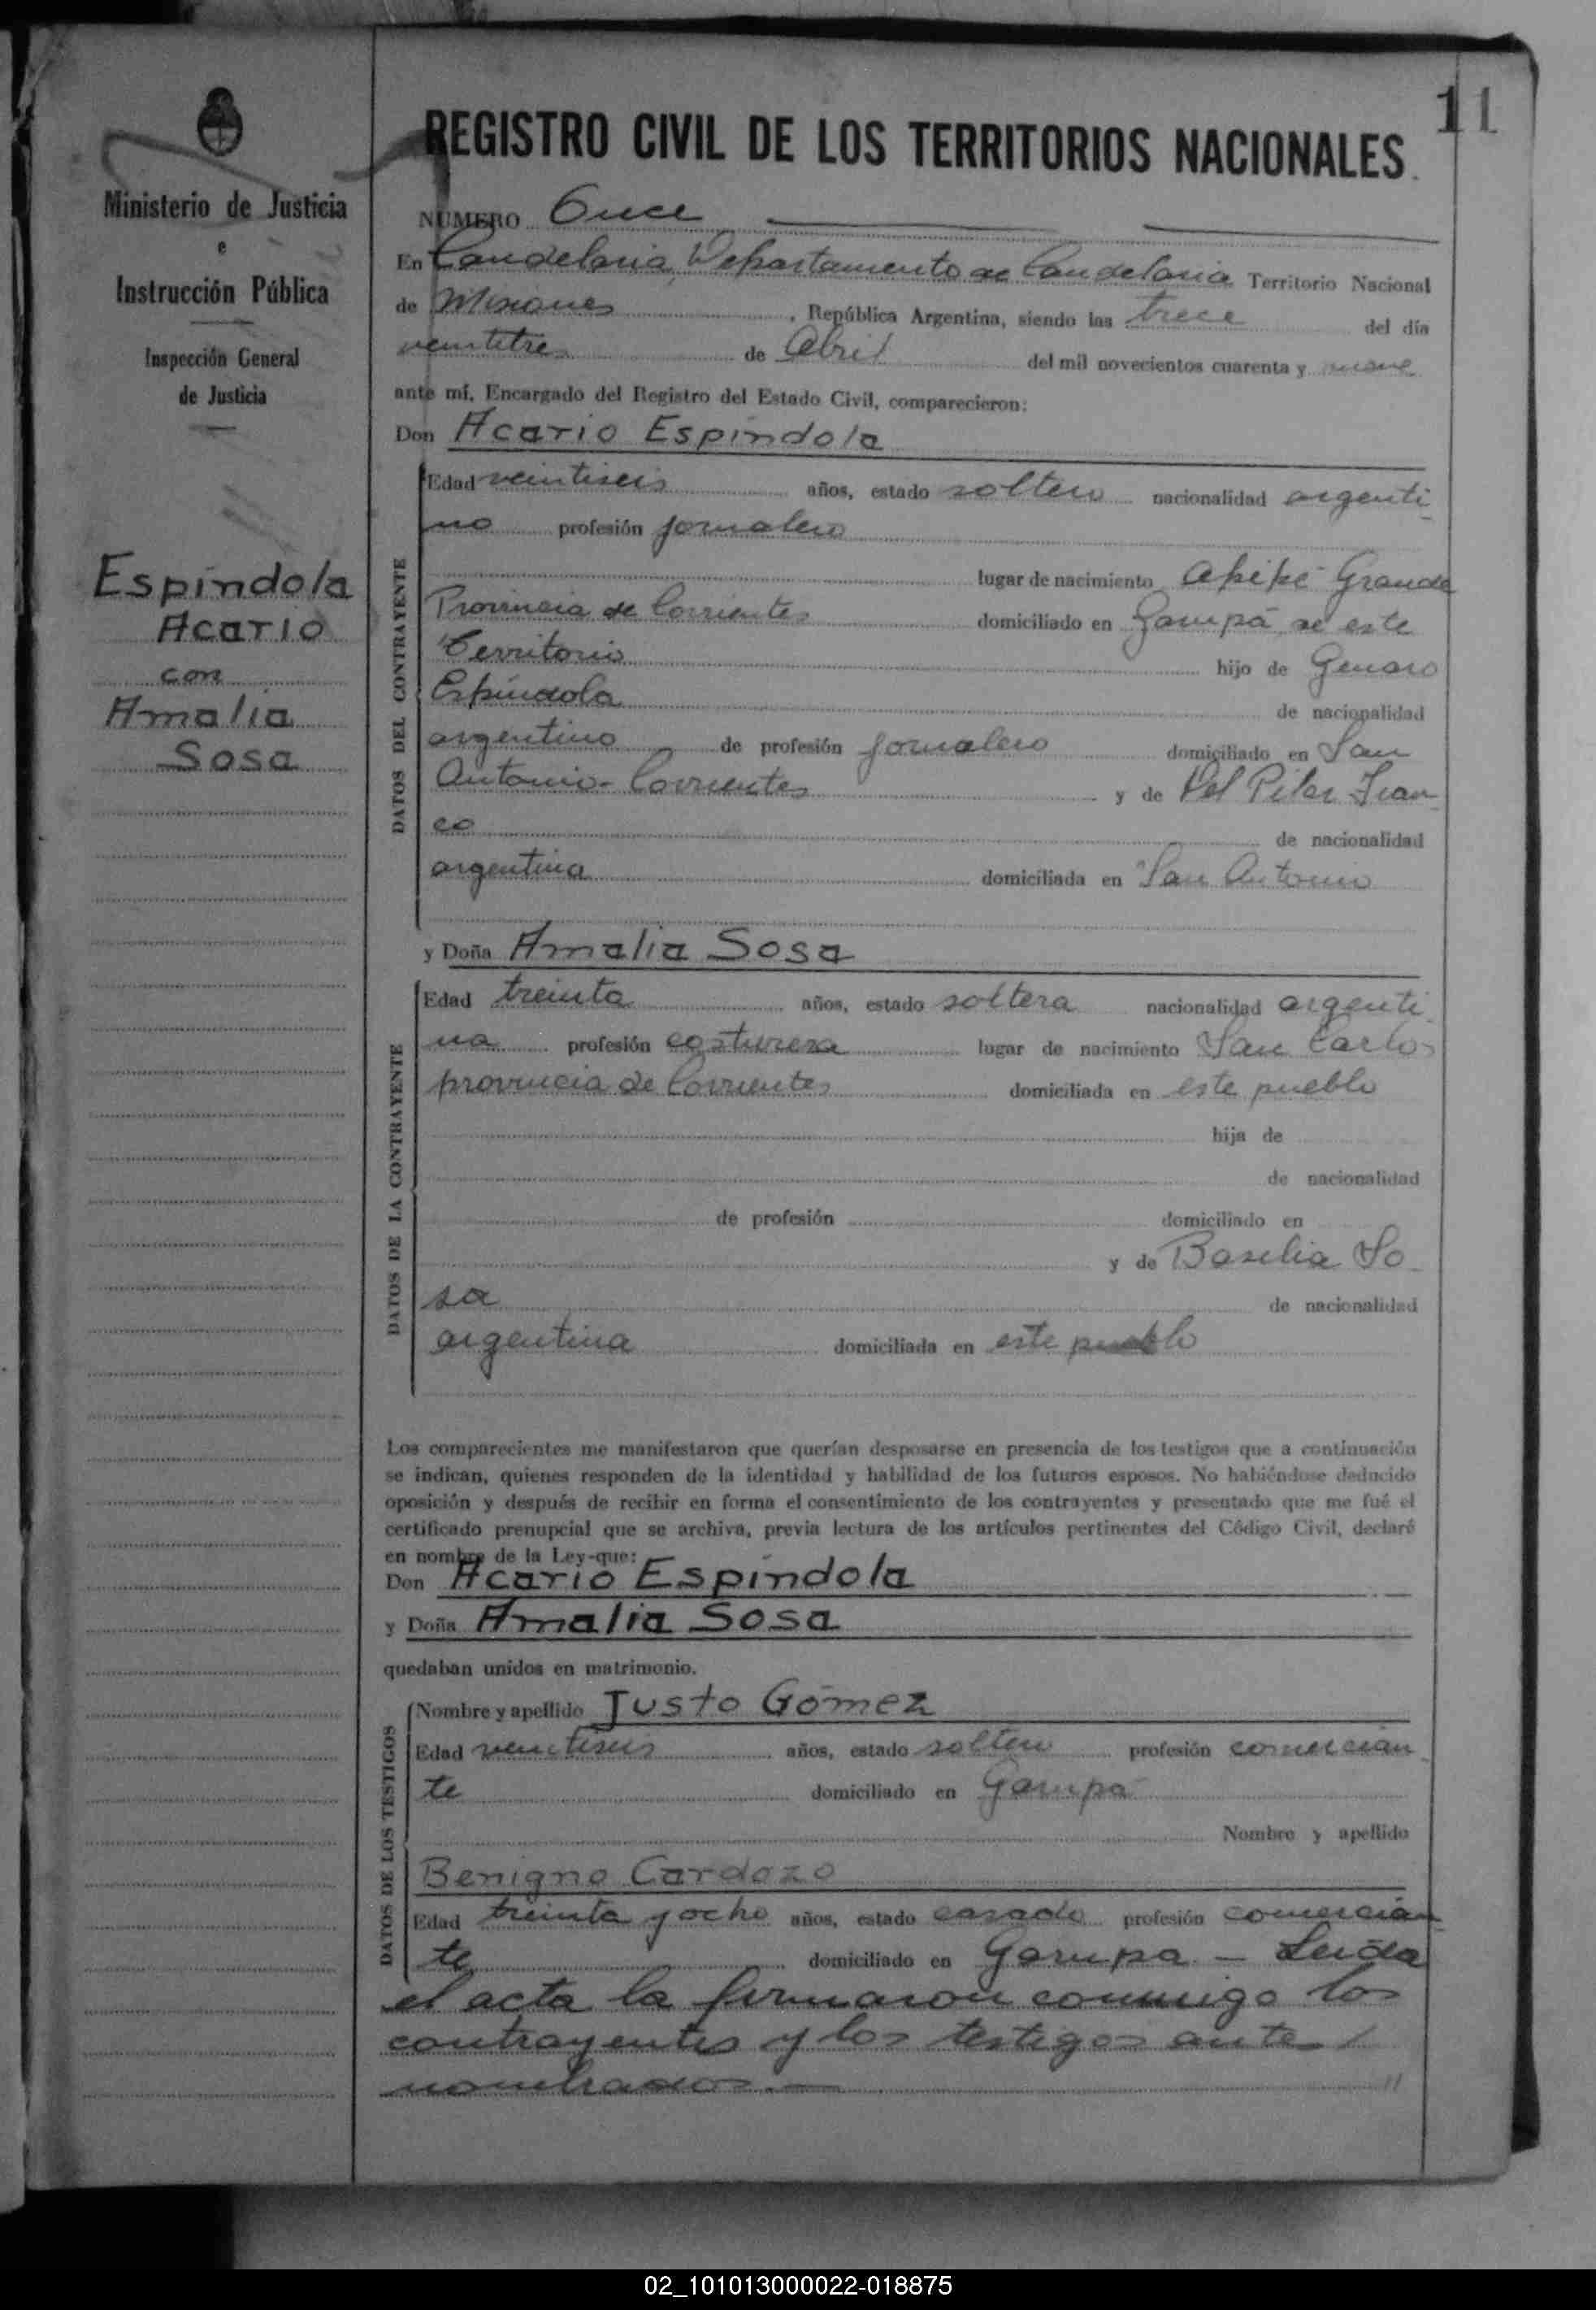 11
REGISTRO CIVIL DE LOS TERRITORIOS NACIONALES.
Ministerio de Justicia
e
Instrucción Pública
Inspección General
de Justicia
Espíndola
Acario
con
Amalia
Sosa
NÚMERO Once
En Candelaria, Departamento de Candelaria Territorio Nacional
de Misiones, República Argentina, siendo las trece del día
veintitres de Abril del mil novecientos cuarenta y nueve
ante mí, Encargado del Registro del Estado Civil, comparecieron:
Don Acario Espíndola
DATOS DEL CONTRAYENTE
Edad veintiseis años, estado soltero nacionalidad argenti
no profesión jornalero
lugar de nacimiento Apipé Grande
Provincia de Corrientes domiciliado en Garupá de este
Territorio hijo de Genaro
Espíndola de nacionalidad
argentino de profesión jornalero domiciliado en San
Antonio- Corrientes y de Del Pilar Fran
co de nacionalidad
argentina domiciliada en San Antonio
y Doña Amalia Sosa
DATOS DE LA CONTRAYENTE
Edad treinta años, estado soltera nacionalidad argenti
na profesión costurera lugar de nacimiento San Carlos
provincia de Corrientes domiciliada en este pueblo
hija de
de nacionalidad
de profesión domiciliado en
y de Basilia So
sa de nacionalidad
argentina domiciliada en este pueblo
Los comparecientes me manifestaron que querían desposarse en presencia de los testigos que a continuación
se indican, quienes responden de la identidad y habilidad de los futuros esposos. No habiéndose deducido
oposición y después de recibir en forma el consentimiento de los contrayentes y presentado que me fué el
certificado prenupcial que se archiva, previa lectura de los artículos pertinentes del Código Civil, declaré
en nombre de la Ley-que:
Don Acario Espíndola
y Doña Amalia Sosa
quedaban unidos en matrimonio.
DATOS DE LOS TESTIGOS
Nombre y apellido Justo Gómez
Edad veintiseis años, estado soltero profesión comercian
te domiciliado en Garupá
Nombre y apellido
Benigno Cardozo
Edad treinta y ocho años, estado casado profesión comercian
te domiciliado en Garupa - Leida
el acta la firmaron conmigo los
contrayentes y los testigos ante /
nombrados.-
02_101013000022-018875